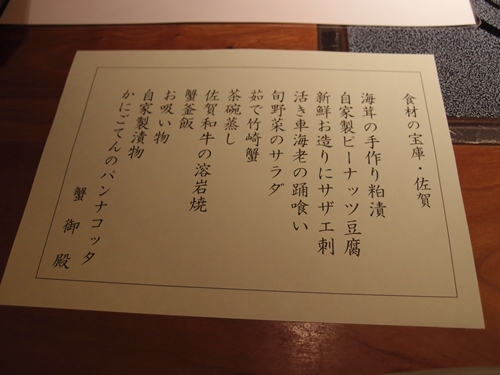 食材の宝庫・佐賀
海茸の手作り粕漬
自家製ピーナッツ豆腐
新鮮お造りにサザエ刺
活き車海老の踊喰い
旬野菜のサラダ
茹で竹崎蟹
茶碗蒸し
佐賀和牛の溶岩焼
蟹釜飯
お吸い物
自家製漬物
かにごてんのパンナコッタ
蟹御殿